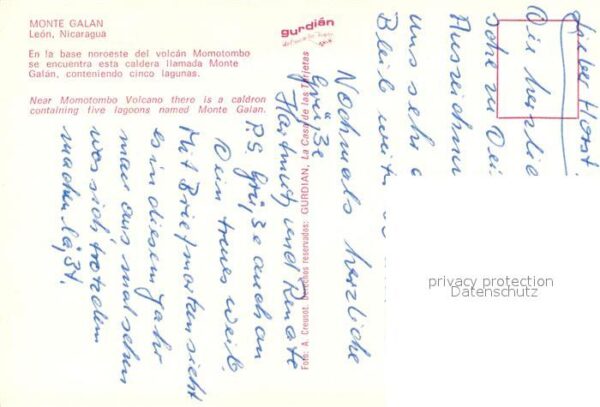 MONTE GALAN
León, Nicaragua
En la base noroeste del volcán Momotombo
se encuentra esta caldera llamada Monte
Galán, conteniendo cinco lagunas.
Near Momotombo Volcano there is a caldron
containing five lagoons named Monte Galan.
gurdián
Foto: A. Creusot. Derechos reservados: GURDIAN, La Casa de las Tarjetas
Lieber Horst!
Die herzlie
Auszeichnun
Dei
uns sehr
Bleib weit
Nochmals herzliche
Grüße
Hartmut und Renate
P.S. Grüße auch an
Dein treues Weib.
Mit Briefmarken sieht
es in diesem Jahr
mau aus mal sehen
was sich trotzdem
machen läßt.
privacy protection
Datenschutz